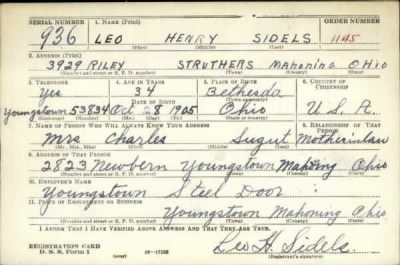 SERIAL NUMBER 1. NAME (Print) ORDER NUMBER
936 LEO HENRY SIDELS 1145
(First) (Middle) (Last)
2. ADDRESS (Print)
3929 RILEY STRUTHERS MAHONING OHIO
(Number and street or R. F. D. number) (Town) (County) (State)
3. TELEPHONE 4. AGE IN YEARS 5. PLACE OF BIRTH 6. COUNTRY OF CITIZENSHIP
Yes 34 Bethesda
(Town or county)
DATE OF BIRTH
Youngstown 53834 Oct 8 1905 Ohio U.S.A.
(Mo.) (Day) (Yr.) (State or country)
7. NAME OF PERSON WHO WILL ALWAYS KNOW YOUR ADDRESS 8. RELATIONSHIP OF THAT PERSON
Mrs Charles Motherinlaw
(Mr., Mrs., Miss) (First) (Middle) (Last)
9. ADDRESS OF THAT PERSON
2823 Newbern Youngstown Mahoning Ohio
(Number and street or R. F. D. number) (Town) (County) (State)
10. EMPLOYER'S NAME
Youngstown Steel Door
11. PLACE OF EMPLOYMENT OR BUSINESS
Youngstown Mahoning Ohio
(Number and street or R. F. D. number) (Town) (County) (State)
I AFFIRM THAT I HAVE VERIFIED ABOVE ANSWERS AND THAT THEY ARE TRUE.
REGISTRATION CARD
D. S. S. Form 1 (over) Leo H. Sidels
(Registrant's signature)